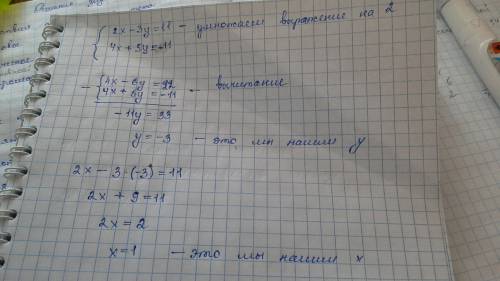 2x-3y=11 - умножаем выражение на 2
4x+5y=-11
4x-6y=22
- 4x+5y=-11 - вычитание
-11y=33
y=-3 - это мы нашли y
2x-3·(-3)=11
2x+9=11
2x=2
x=1 - это мы нашли x